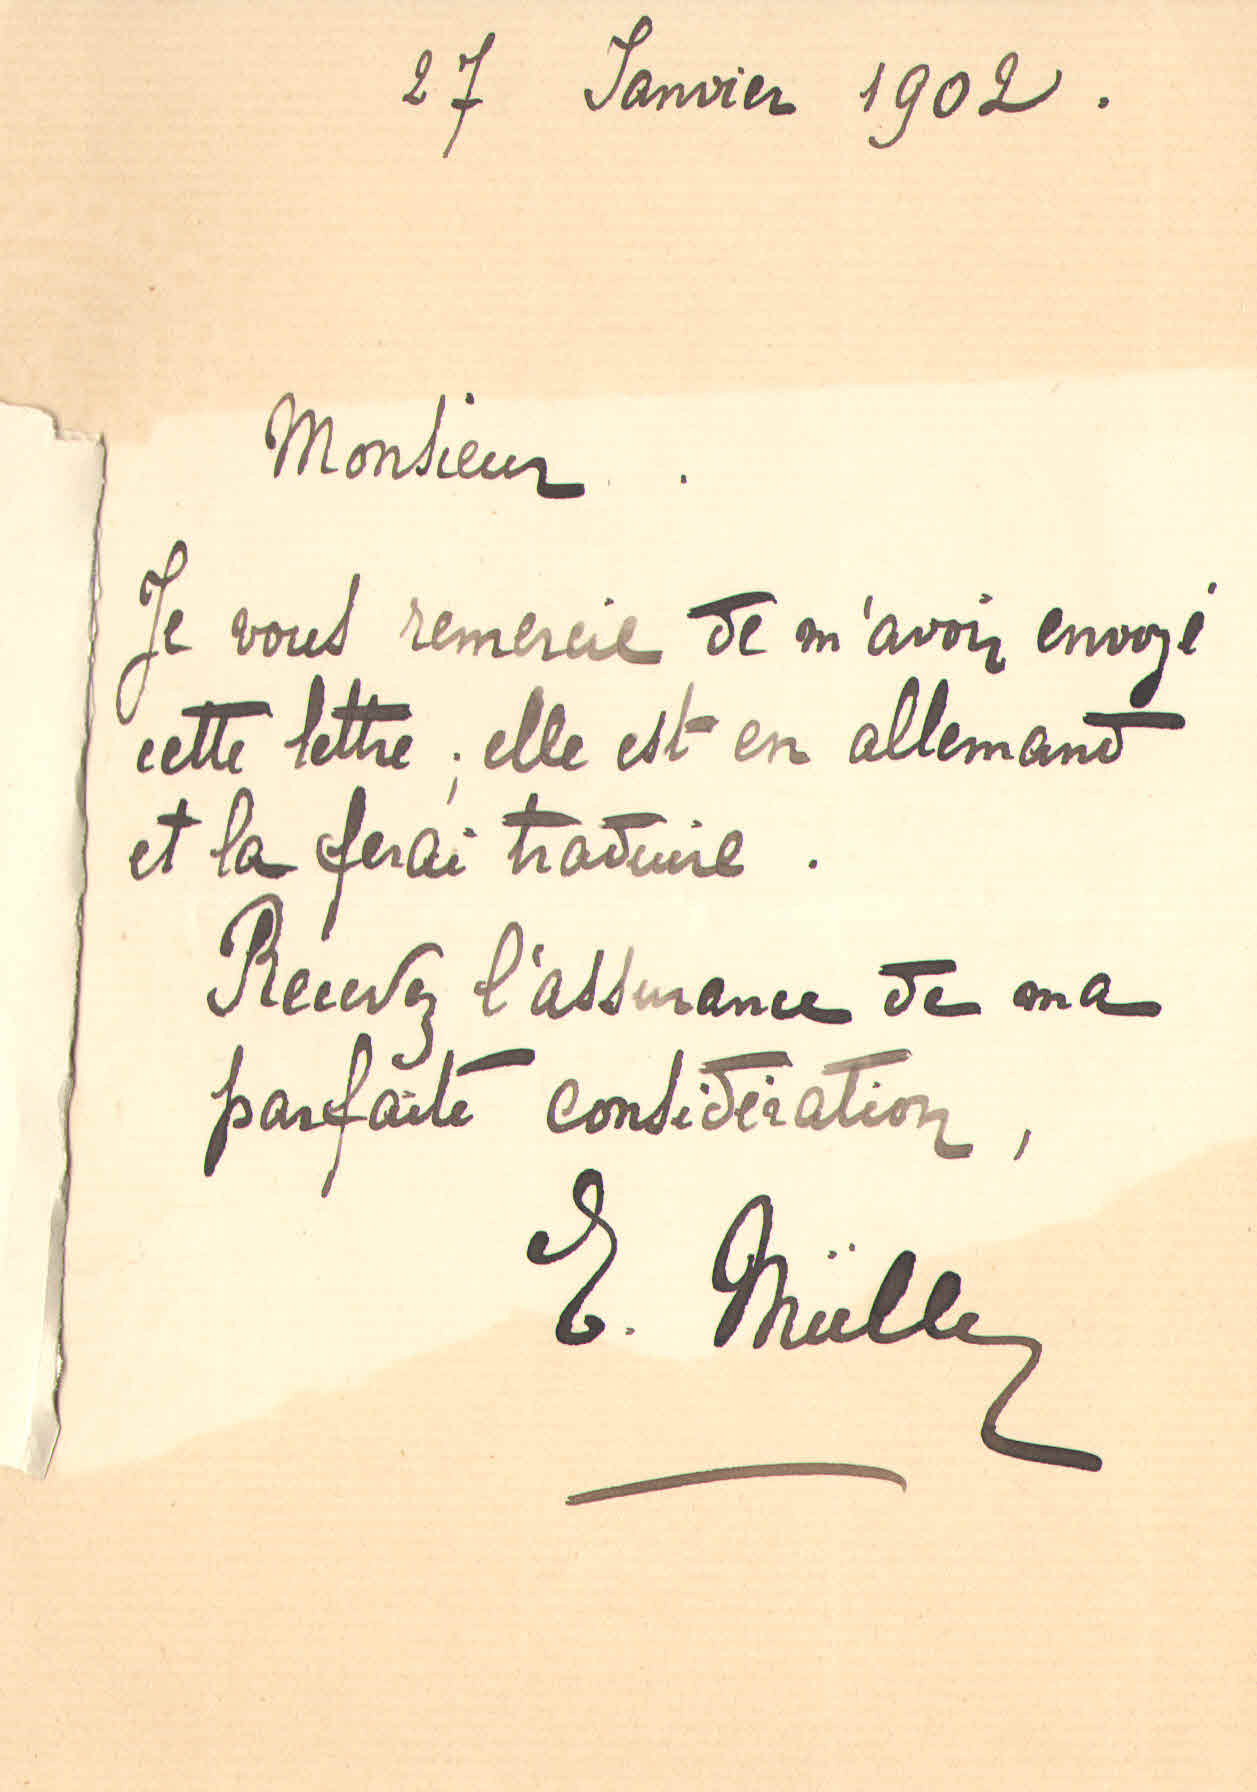 27 Janvier 1902.
Monsieur.
Je vous remercie de m'avoir envoyé
cette lettre ; elle est en allemand
et la ferai traduire.
Recevez l'assurance de ma
parfaite considération,
E. Müller